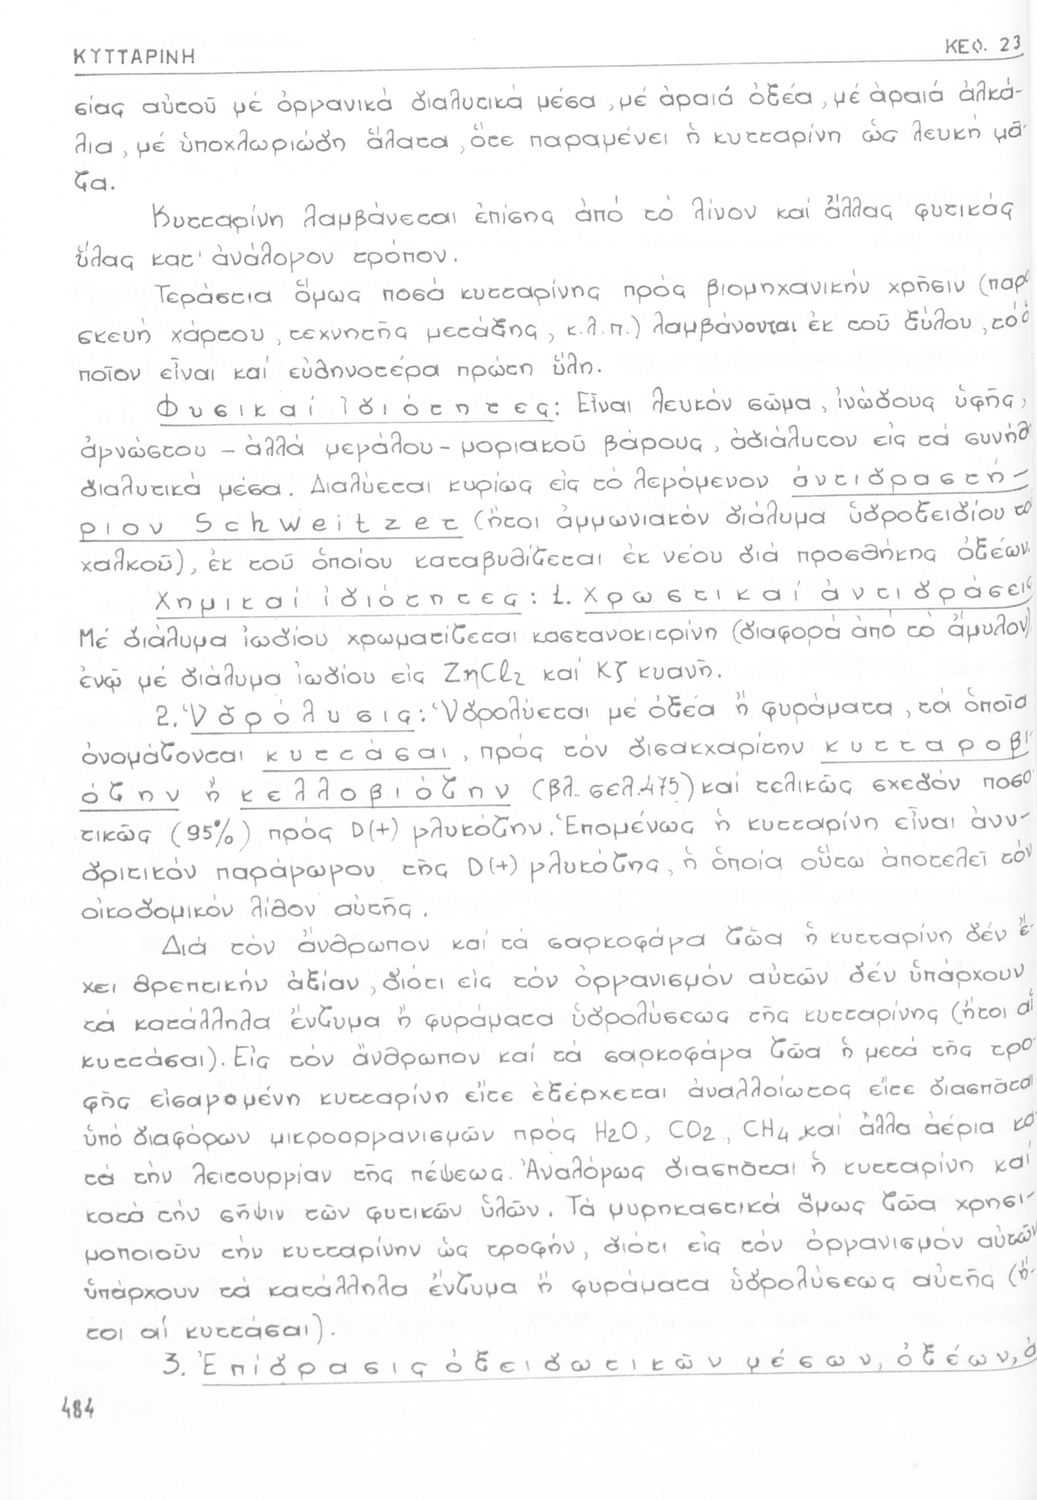 ΚΥΤΤΑΡΙΝΗ ΚΕΦ. 23
σίας αὐτοῦ μέ ὀργανικά διαλυτικά μέσα, μέ ἀραιά ὀξέα, μέ ἀραιά ἀλκά-
λια, μέ ὑποχλωριώδη ἅλατα, ὅτε παραμένει ἡ κυτταρίνη ὡς λευκή μᾶ-
ζα.
Κυτταρίνη λαμβάνεται ἐπίσης ἀπό τό λίνον καί ἄλλας φυτικάς
ὕλας κατ' ἀνάλογον τρόπον.
Τεράστια ὅμως ποσά κυτταρίνης πρός βιομηχανικήν χρῆσιν (παρ
σκευή χάρτου, τεχνητῆς μετάξης, κ.λ.π.) λαμβάνονται ἐκ τοῦ ξύλου, τό ὁ
ποῖον εἶναι καί εὐθηνοτέρα πρώτη ὕλη.
Φυσικαί Ἰδιότητες: Εἶναι λευκόν σῶμα, ἰνώδους ὑφῆς,
ἀγνώστου - ἀλλά μεγάλου - μοριακοῦ βάρους, ἀδιάλυτον εἰς τά συνήθ
διαλυτικά μέσα. Διαλύεται κυρίως εἰς τό λεγόμενον ἀντιδραστή-
ριον Schweitzer (ἤτοι ἀμμωνιακόν διάλυμα ὑδροξειδίου το
χαλκοῦ), ἐκ τοῦ ὁποίου καταβυθίζεται ἐκ νέου διά προσθήκης ὀξέων.
Χημικαί ἰδιότητες: 1. Χρωστικαί ἀντιδράσεις
Μέ διάλυμα ἰωδίου χρωματίζεται καστανοκιτρίνη (διαφορά ἀπό τό ἄμυλον)
ἐνῷ μέ διάλυμα ἰωδίου εἰς ZηCl2 καί Κζ κυανῆ.
2. Ὑδρόλυσις: Ὑδρολύεται μέ ὀξέα ἤ φυράματα, τά ὁποῖα
ὀνομάζονται κυττάσαι, πρός τόν δισακχαρίτην κυτταροβι-
όζην ἤ κελλοβιόζην (βλ. σελ. 475) καί τελικῶς σχεδόν ποσο
τικῶς (95%) πρός D(+) γλυκόζην. Ἑπομένως ἡ κυτταρίνη εἶναι ἀνυ-
δριτικόν παράγωγον τῆς D(+) γλυκόζης, ἡ ὁποία οὕτω ἀποτελεῖ τόν
οἰκοδομικόν λίθον αὐτῆς.
Διά τόν ἄνθρωπον καί τά σαρκοφάγα ζῶα ἡ κυτταρίνη δέν ἔ-
χει θρεπτικήν ἀξίαν, διότι εἰς τόν ὀργανισμόν αὐτῶν δέν ὑπάρχουν
τά κατάλληλα ἔνζυμα ἤ φυράματα ὑδρολύσεως τῆς κυτταρίνης (ἤτοι αἱ
κυττάσαι). Εἰς τόν ἄνθρωπον καί τά σαρκοφάγα ζῶα ἡ μετά τῆς τρο
φῆς εἰσαγομένη κυτταρίνη εἴτε ἐξέρχεται ἀναλλοίωτος εἴτε διασπᾶται
ὑπό διαφόρων μικροοργανισμῶν πρός H2O, CO2, CH4, καί ἄλλα ἀέρια κα
τά τήν λειτουργίαν τῆς πέψεως. Ἀναλόγως διασπᾶται ἡ κυτταρίνη καί
κατά τήν σῆψιν τῶν φυτικῶν ὑλῶν. Τά μυρηκαστικά ὅμως ζῶα χρησι-
μοποιοῦν τήν κυτταρίνην ὡς τροφήν, διότι εἰς τόν ὀργανισμόν αὐτῶν
ὑπάρχουν τά κατάλληλα ἔνζυμα ἤ φυράματα ὑδρολύσεως αὐτῆς (ἤ-
τοι αἱ κυττάσαι).
3. Ἐπίδρασις ὀξειδωτικῶν μέσων, ὀξέων, ἀ
484